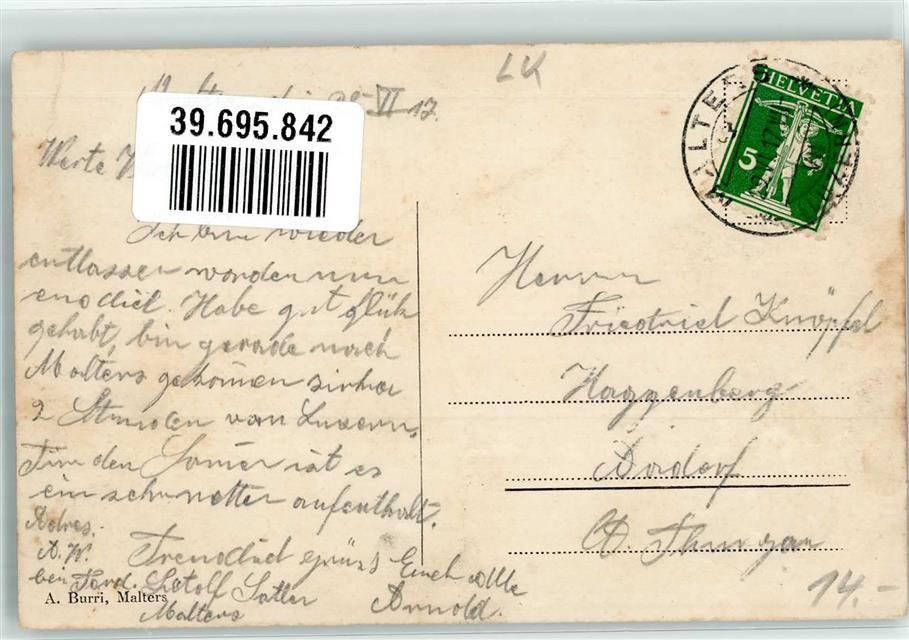 LK
39.695.842
VI 17.
HELVETIA
5
MALTERS
Werte
Ich bin wieder
entlassen worden nun
endlich. Habe gut glük
gehabt, bin gerade nach
Malters gekomen zirka
2 Stunden von Luzern.
Für den Somer ist es
ein sehr netter aufenthalt.
Adres.
A. W.
bei Ferd. Satler
Malters
Freundlich grüsst Euch alle
Arnold.
Herrn
Friedrich Knöpfel
Haggenberg
Aadorf
Ct. Thurgau
A. Burri, Malters
14.-